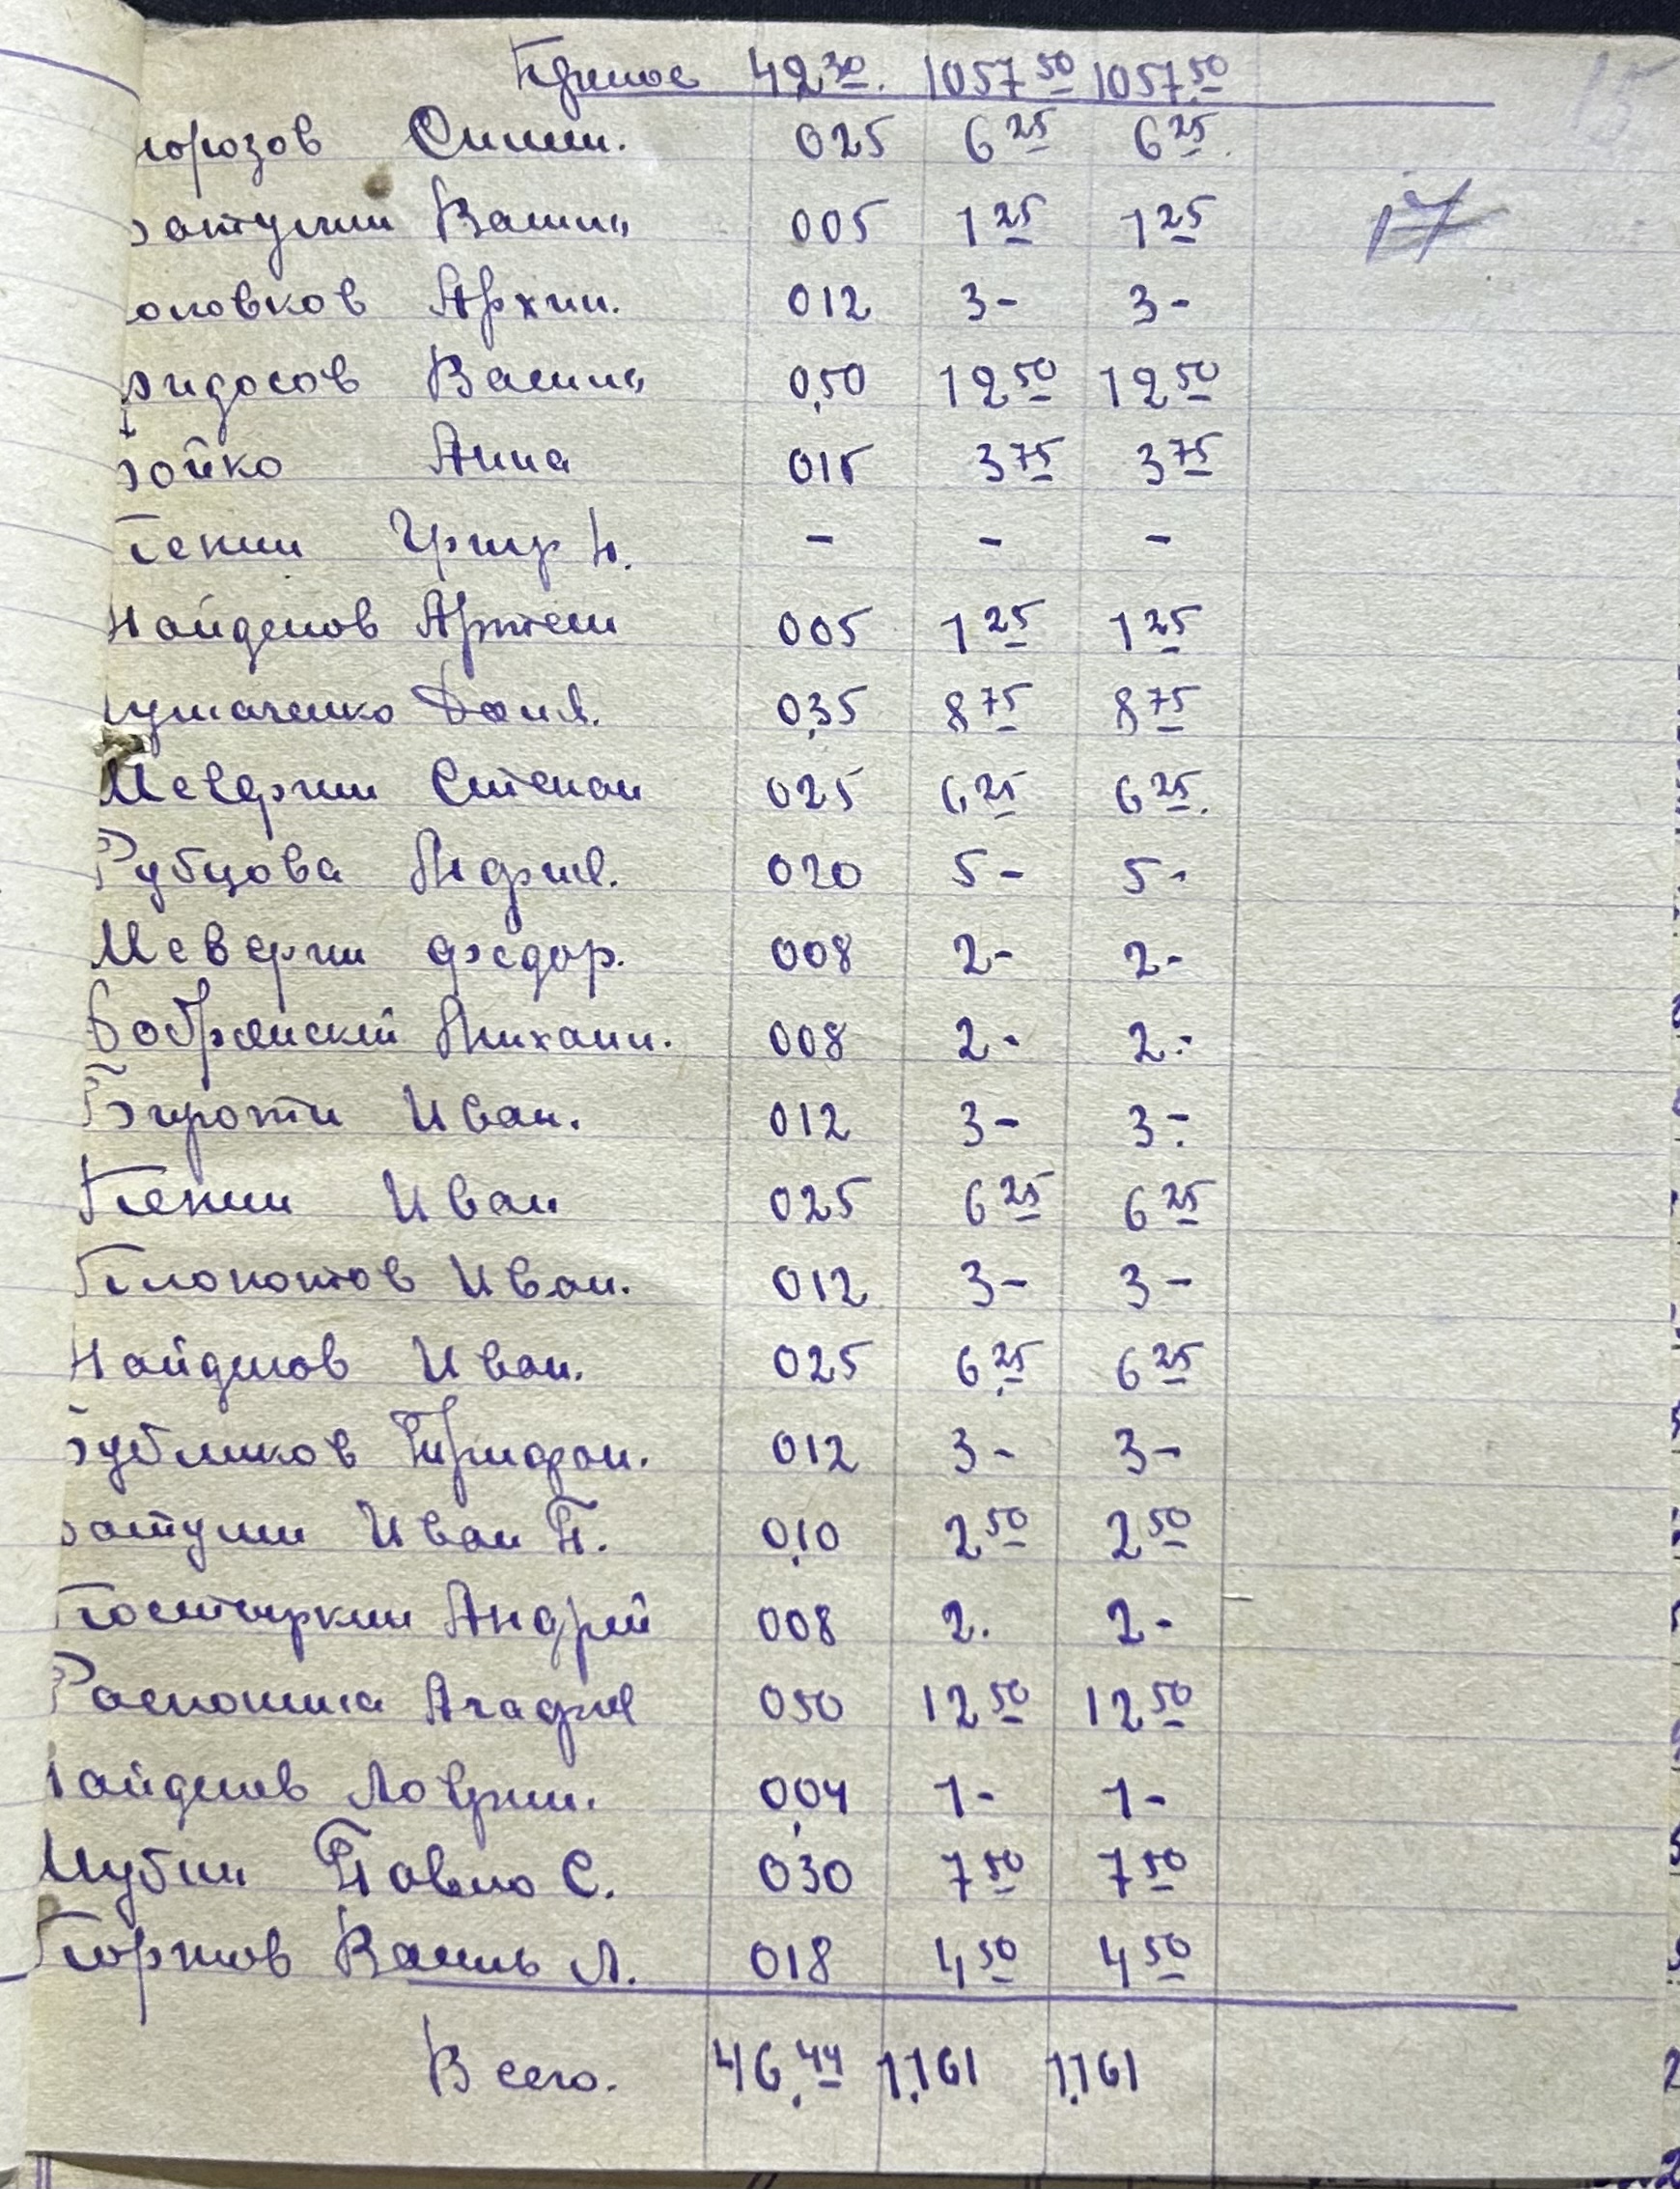 Принос 42 30. 1057 50 1057.50
орозов Симон. 025 6 25 6 25.
17
атулин Васили 005 1 25 1 25
оловков Архип. 012 3- 3-
ридосов Васили 0,50 12 50 12 50
ойко Анна 015 3 75 3 75
Пекин Григр Н. - - -
Найденов Артем 005 1 25 1 25
ушаченко Данил. 0,35 8 75 8 75
Меверин Степан 025 6 25 6 25.
Рубцова Анфия. 020 5- 5-
Меверин Федор. 008 2- 2-
Бобрянский Михаил. 008 2- 2-
Иван. 012 3- 3-
Пекин Иван 025 6 25 6 25
Плохотов Иван. 012 3- 3-
Найденов Иван. 025 6 25 6 25
убликов Трифон. 012 3- 3-
атулин Иван П. 0,10 2 50 2 50
Андрей 008 2. 2-
Распопина Агафия 050 12 50 12 50
айденов Лаврин. 0,04 1- 1-
Шубин Павло С. 0,30 7 50 7 50
Портов Василь Л. 018 4 50 4 50
Всего. 46,44 1,161 1,161